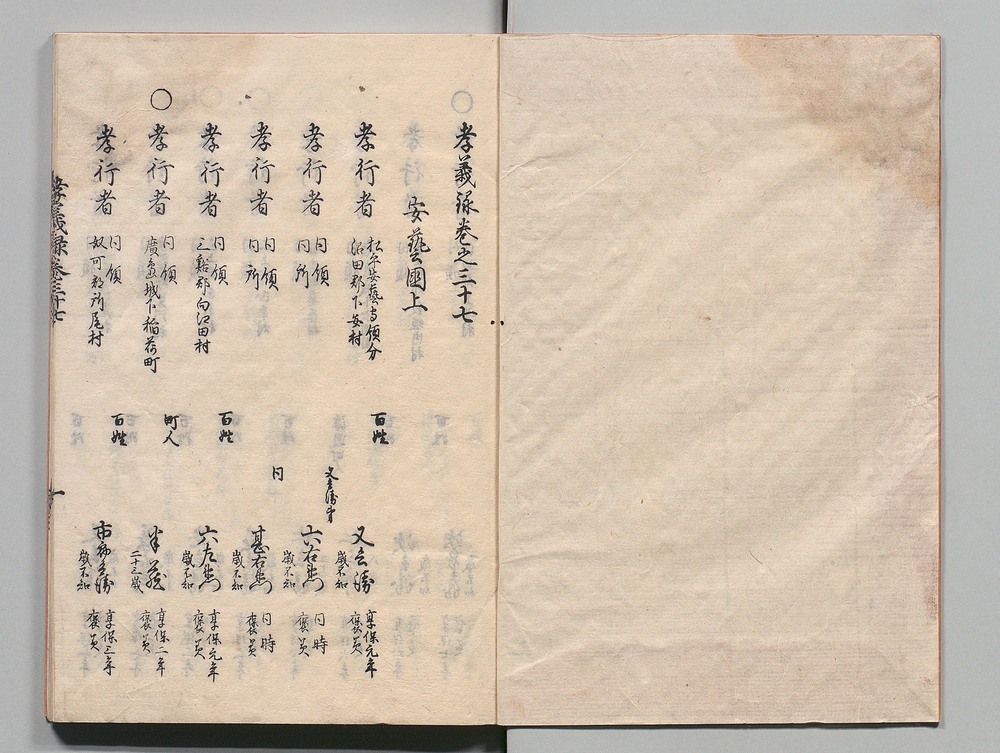 孝義録卷之三十七
安藝國上
孝行者 松平安藝守領分 沼田郡下安村 百姓 又兵衛 歳不知 享保元年 褒美
孝行者 同領 同所 又兵衛弟 六右衛門 歳不知 同時 褒美
孝行者 同領 同所 同 甚右衛門 歳不知 同時 褒美
孝行者 同領 三谿郡向江田村 百姓 六左衛門 歳不知 享保元年 褒美
○孝行者 同領 廣島城下稲荷町 町人 半蔵 二十三歳 享保二年 褒美
孝行者 同領 奴可郡所尾村 百姓 市郎兵衛 歳不知 享保三年 褒美
孝義録卷三十七
一